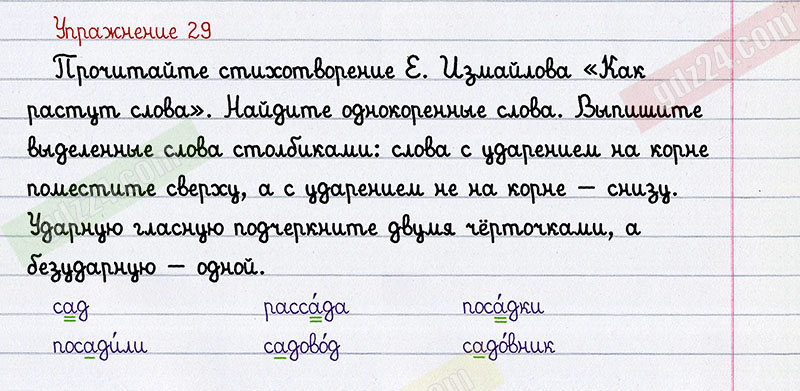 Упражнение 29
Прочитайте стихотворение Е. Измайлова «Как
растут слова». Найдите однокоренные слова. Выпишите
выделенные слова столбиками: слова с ударением на корне
поместите сверху, а с ударением не на корне – снизу.
Ударную гласную подчеркните двумя чёрточками, а
безударную – одной.
сад расса́да поса́дки
посади́ли садово́д садо́вник
gdz24.com
gdz24.com